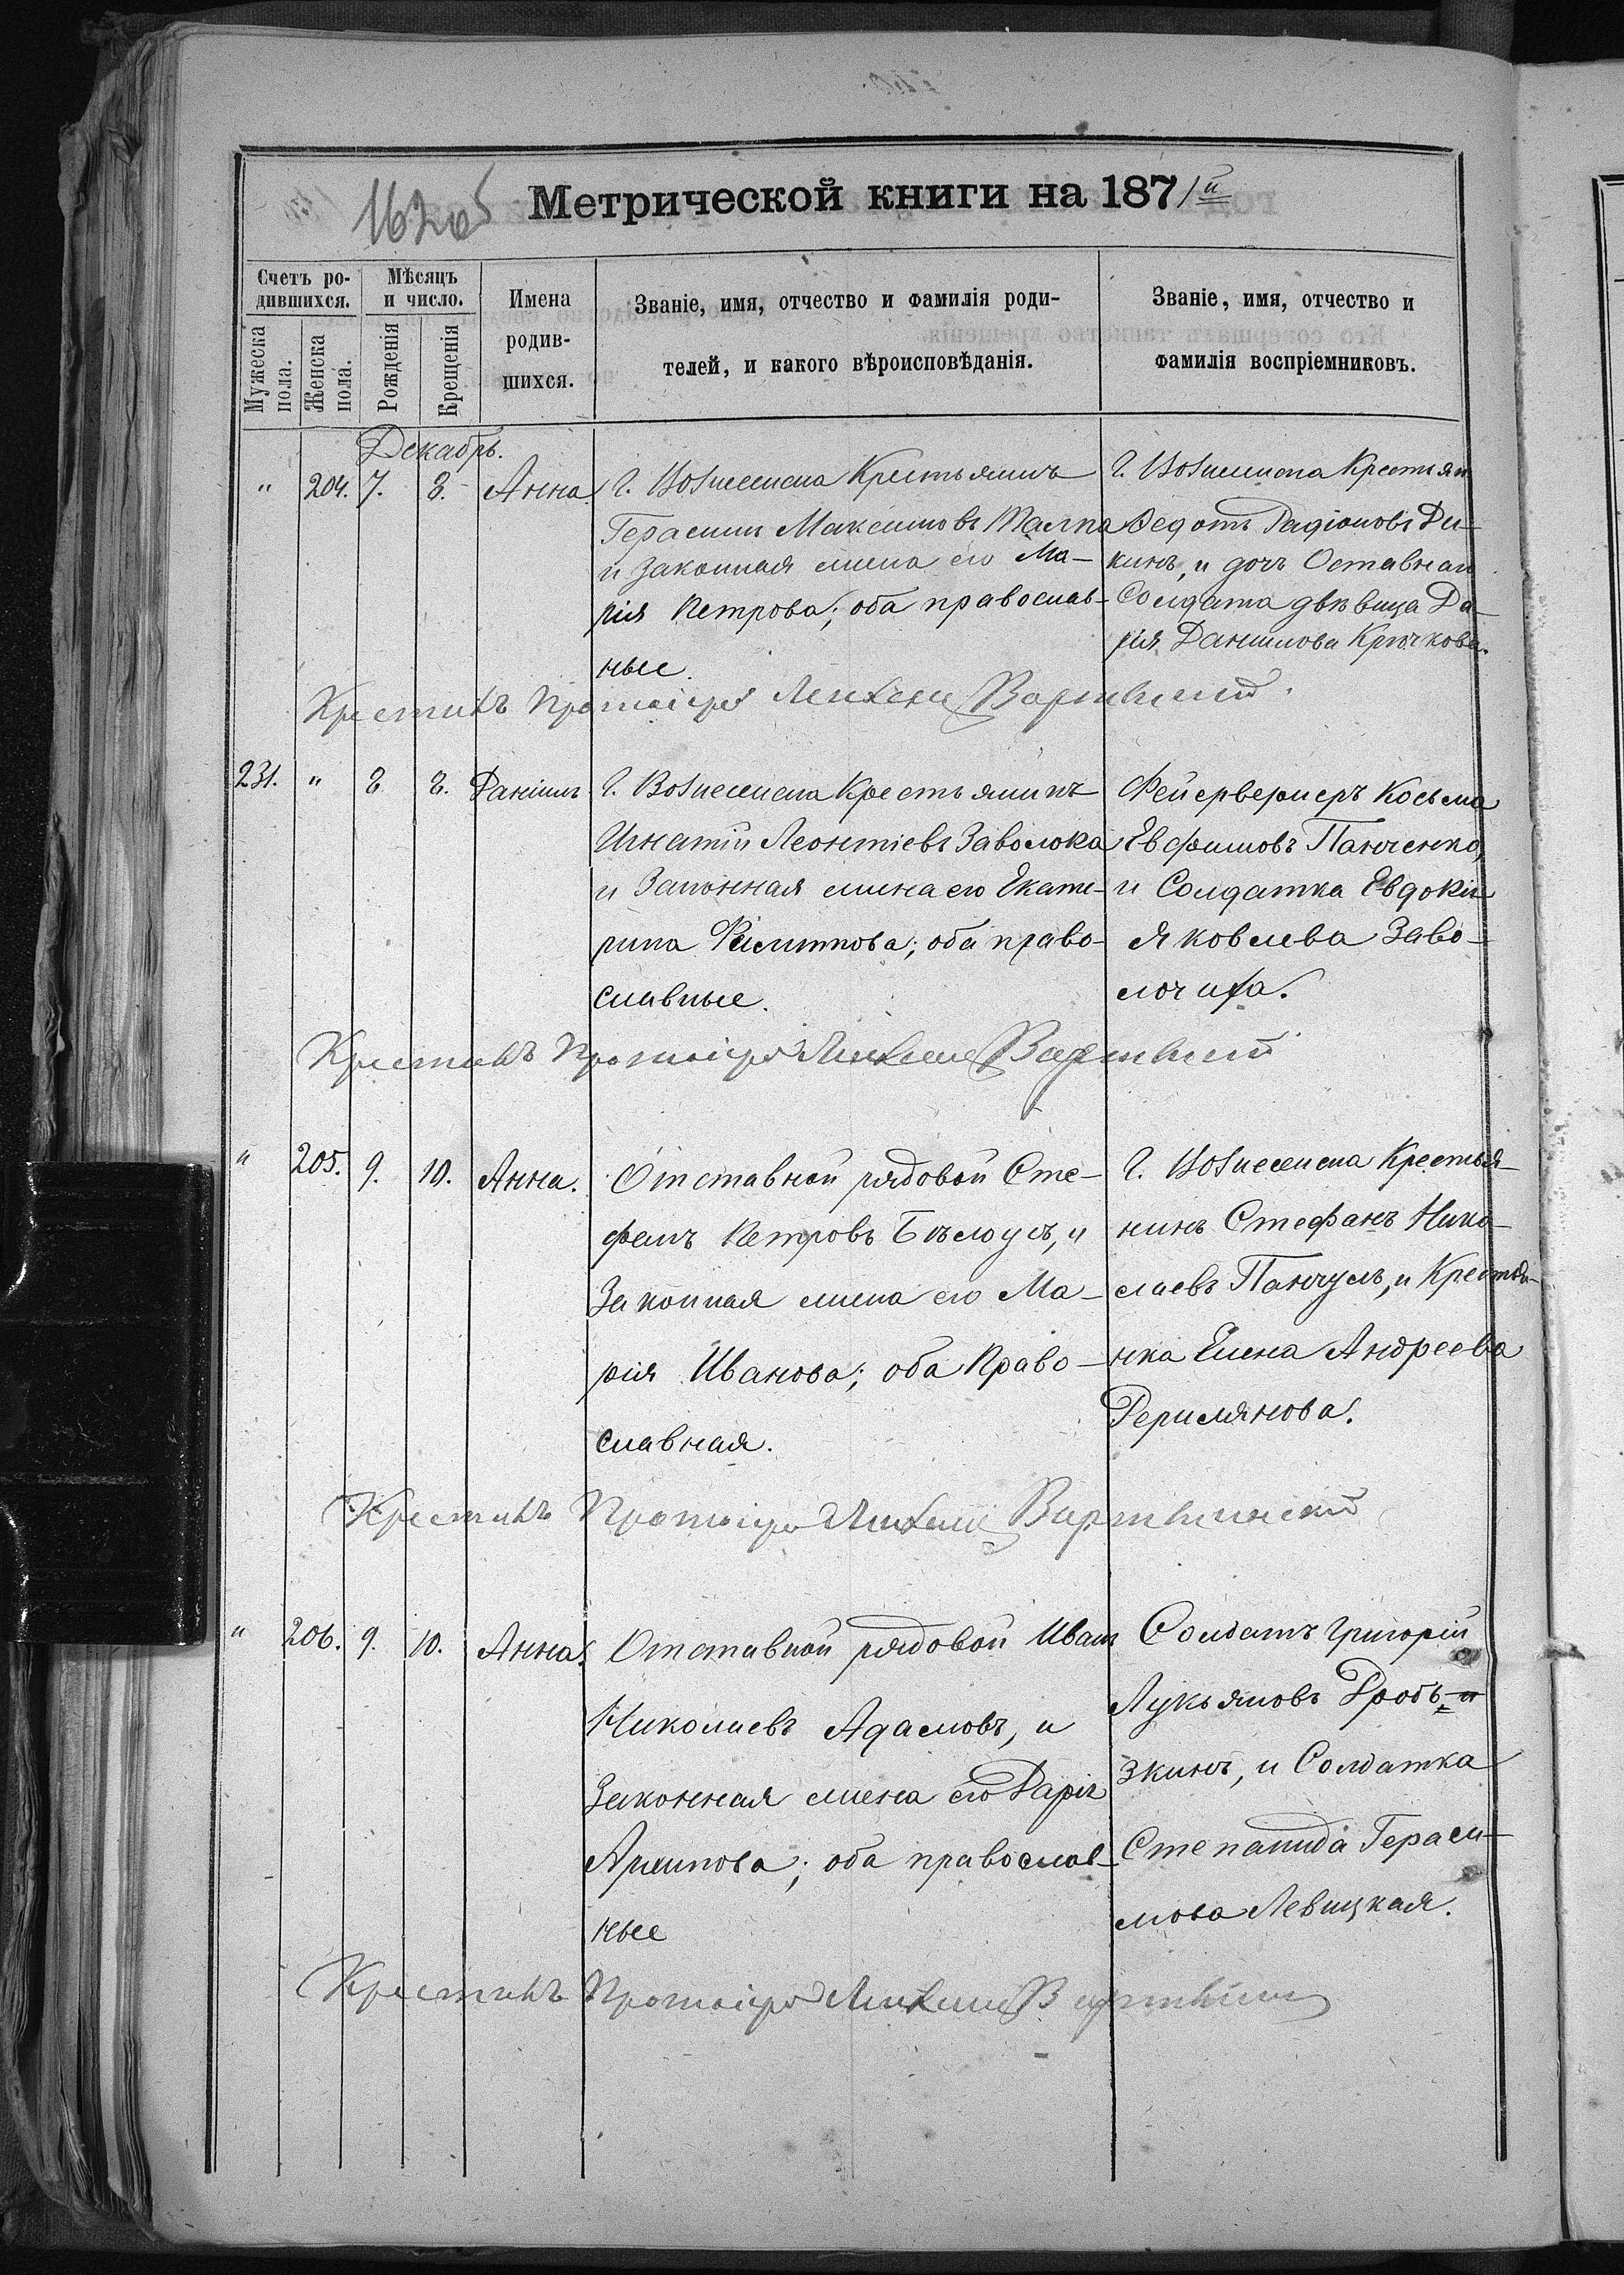 162об
Метрической книги на 1871й
Счетъ ро-
дившихся.
Мѣсяцъ
и число.
Мужеска
пола.
Женска
пола.
Рожденія
Крещенія
Имена
родив-
шихся.
Званіе, имя, отчество и фамилія роди-
телей, и какого вѣроисповѣданія.
Званіе, имя, отчество и
фамилія воспріемниковъ.
Декабрь.
" 204. 7. 8. Анна.
Г. Вознесенска Крестьянинъ
Герасимъ Максимовъ
и законная жена его Ма-
рія Петрова; оба православ-
ные.
Г. Вознесенска Крестьян
Ѳедотъ Радіоновъ Ди-
кинъ, и дочь Оставнаго
Солдата дѣвица Да-
рія Данилова Крючкова.
Крестилъ Протоіерей
231. " 8 8. Даніилъ
Г. Вознесенска Крестьянинъ
Игнатій Леонтіевъ Заволока
и Законная жена его Екате-
рина Филиппова; оба право-
славные.
Фейерверкеръ Косьма
Евфимовъ Панченко,
и Солдатка Евдокія
Яковлева Заво-
Крестилъ Протоіерей
" 205. 9. 10. Анна.
Отставной рядовой Сте-
фанъ Петровъ Бѣлоусъ, и
Законная жена его Ма-
рія Иванова; оба Право-
славная.
Г. Вознесенска Крестья-
нинъ Стефанъ Нико-
лаевъ Панчулъ, и Крестья-
нка Елена Андреева
Крестилъ Протоіерей
" 206. 9. 10. Анна.
Отставной рядовой Иванъ
Николаевъ Адамовъ, и
Законная жена его Дарія
Архипова; оба православ-
ные
Солдатъ Григорій
Лукьяновъ Дробы-
зкинъ, и Солдатка
Степанида Гераси-
мова Левицкая.
Крестилъ Протоіерей